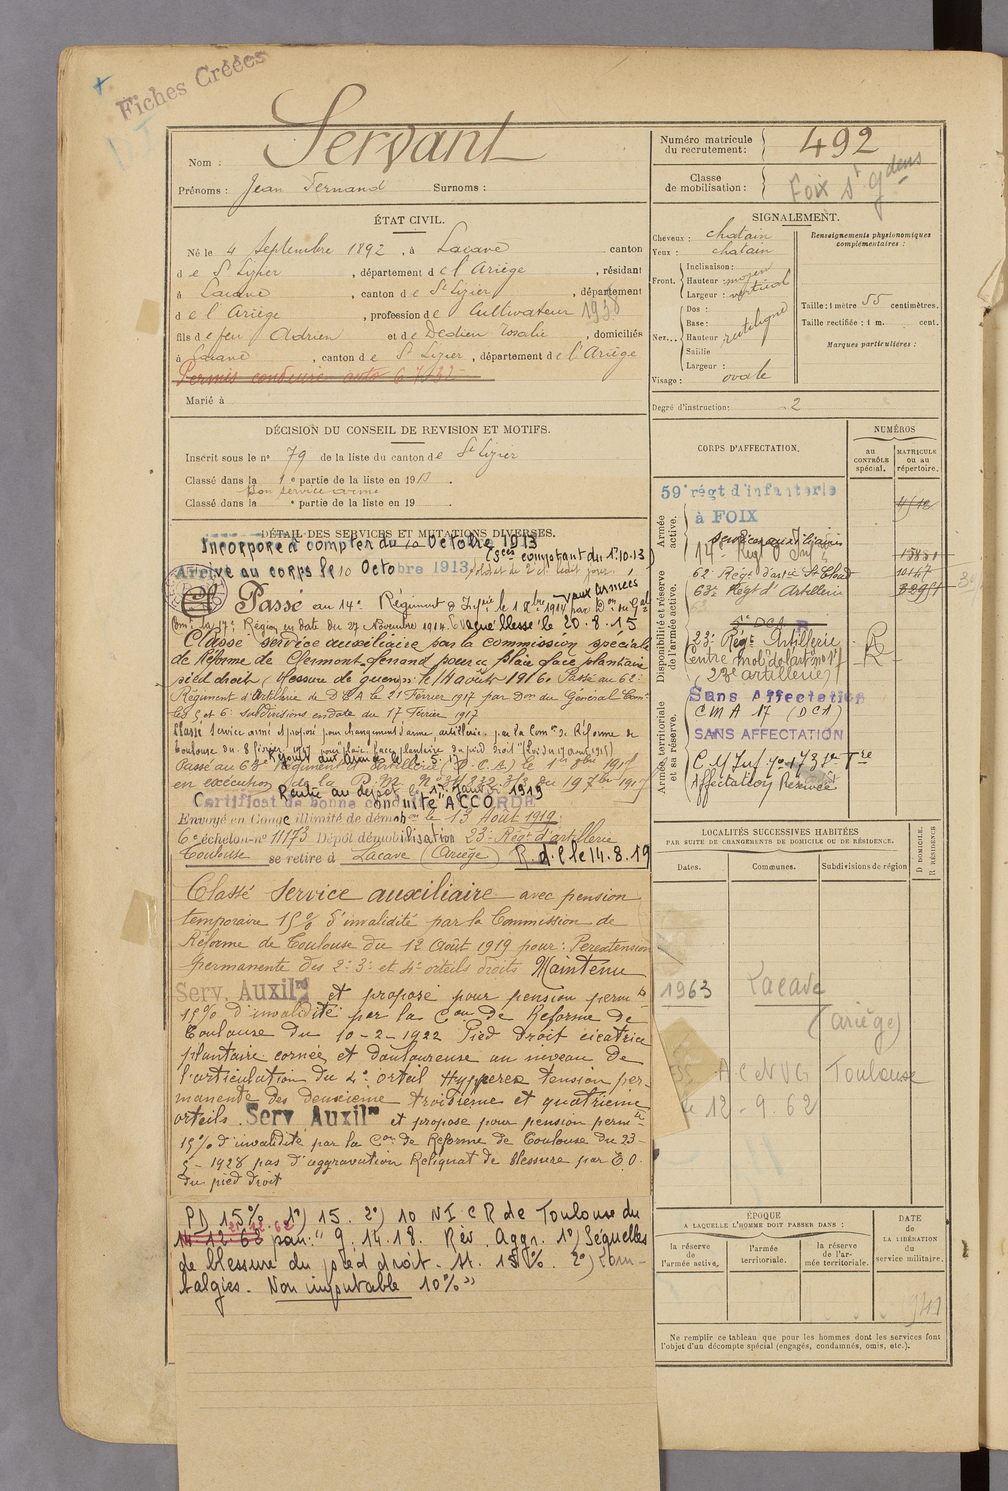 Fiches Créées
Nom : Servant
Prénoms : Jean Fernand Surnoms :
Numéro matricule du recrutement : 492
Classe de mobilisation :
Foix Sr gdens
ÉTAT CIVIL.
Né le 4 Septembre 1892, à Lacave canton
de St Lizier, département de l'Ariège, résidant
à Lacave, canton de St Lizier, département
de l'Ariège, profession de Cultivateur 1938
fils de feu Adrien et de Dedieu Rosalie, domiciliés
à Lacave, canton de St Lizier, département de l'Ariège
Permis conduire auto
Marié à
DÉCISION DU CONSEIL DE REVISION ET MOTIFS.
Inscrit sous le no 79 de la liste du canton de St Lizier
Classé dans la 1e partie de la liste en 1913.
Bon service armé
Classé dans la e partie de la liste en 19 .
DÉTAIL DES SERVICES ET MUTATIONS DIVERSES.
Incorporé à compter du 10 Octobre 1913
(sces comptant du 1.10.13)
Arrivé au corps le 10 Octobre 1913, soldat de 2e cl. ledit jour.
Passé au 14e Régiment d'Infie le 1 8bre 1914 par Don du Gal
aux Armées
Comt la 17e Région en date du 27 Novembre 1914. Evacué blessé le 20.8.15
Classé service auxiliaire par la commission spéciale
de Réforme de Clermont-ferrand pour "plaie face plantaire
pied droit (blessure de guerre) le 18 août 1916. Passé au 62e
Régiment d'Artillerie de DCA le 21 Février 1917 par Don du Général Comt
les 5 et 6e subdivisions en date du 17 Février 1917
Classé Service armé et proposé pour changement d'arme, artillerie par la Comon de Réforme de
Toulouse du 8 février 1917 pour "plaie face plantaire du pied droit"
Passé au 63e Régiment d'Artillerie (D.C.A) le 1er 9bre 1917
en exécution de la D.M. du 19 7bre 1917
Rentré au dépôt le 1er Janvier 1919
Certificat de bonne conduite ACCORDÉ
Envoyé en Congé illimité de démobon le 13 Août 1919.
6e échelon no 11173 Dépôt démobilisation 23e Régt d'artillerie
Toulouse se retire à Lacave (Ariège) R.d.l le 14.8.19
Classé Service auxiliaire avec pension
temporaire 15% d'invalidité par la Commission de
Réforme de Toulouse du 12 Août 1919 pour : Perextension
permanente des 2e 3e et 4e orteils droits Maintenu
Serv. Auxilre et proposé pour pension permte
15% d'invalidité par la Con de Réforme de
Toulouse du 10-2-1922 Pied droit cicatrice
plantaire cornée et douloureuse au niveau de
l'articulation du 4e orteil Hyperextension per-
manente des deuxième troisième et quatrième
orteils. Serv. Auxilre et proposé pour pension permte
15% d'invalidité par la Con de Réforme de Toulouse du 23-
5-1928 pas d'aggravation Reliquat de blessure par E.O.
du pied droit
PD 15% 1°) 15. 2°) 10 N I C R de Toulouse du
21.12.62
11.12.63 pour : " 9.14.18. Rév. Aggr. 1°) Séquelles
de blessure du pied droit. M. 15%. 2°) Lom-
balgies. Non imputable 10% "
SIGNALEMENT.
Cheveux : chatain
Yeux : chatain
Front. Inclinaison :
Hauteur : moyen
Largeur : vertical
Nez... Dos :
Base :
Hauteur rectiligne
Saillie
Largeur :
Visage : ovale
Renseignements physionomiques complémentaires :
Taille : 1 mètre 55 centimètres.
Taille rectifiée : 1 m. cent.
Marques particulières :
Degré d'instruction : 2
CORPS D'AFFECTATION.
NUMÉROS
AU CONTRÔLE spécial.
MATRICULE OU AU répertoire.
Armée active.
59e régt d'infanterie
à FOIX
services auxiliaires
14e Régt d'Inf
Disponibilité et réserve de l'armée active.
62e Régt d'artie St Cloud
63e Régt d'Artillerie
23e Régt Artillerie
Centre mole de l'art no 17
(23e artillerie)
Armée territoriale et sa réserve.
Sans Affectation
C M A 17 (DCA)
SANS AFFECTATION
Affectation Réservée
LOCALITÉS SUCCESSIVES HABITÉES
PAR SUITE DE CHANGEMENTS DE DOMICILE OU DE RÉSIDENCE.
Dates. Communes. Subdivisions de région
D DOMICILE. R RÉSIDENCE
1963 Lacave
(Ariège)
A C N V G Toulouse
le 12-9.62
ÉPOQUE
A LAQUELLE L'HOMME DOIT PASSER DANS :
la réserve de l'armée active.
l'armée territoriale.
la réserve de l'armée territoriale.
DATE de LA LIBÉRATION du service militaire.
1941
Ne remplir ce tableau que pour les hommes dont les services font
l'objet d'un décompte spécial (engagés, condamnés, omis, etc.).